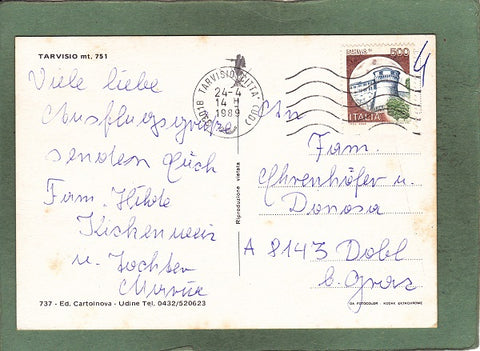 TARVISIO mt. 751
Viele liebe
Ausflugsgrüße
senden Euch
Fam. Hilde
u. Tochter
737 - Ed. Cartoinova - Udine Tel. 0432/520623
Riproduzione vietata
33018 TARVISIO CITTA' (UD)
24-4
14 H
1989
500
ITALIA
An
Fam.
Ehrenhöfer u.
Donosa
A 8143 Dobl
b. Graz